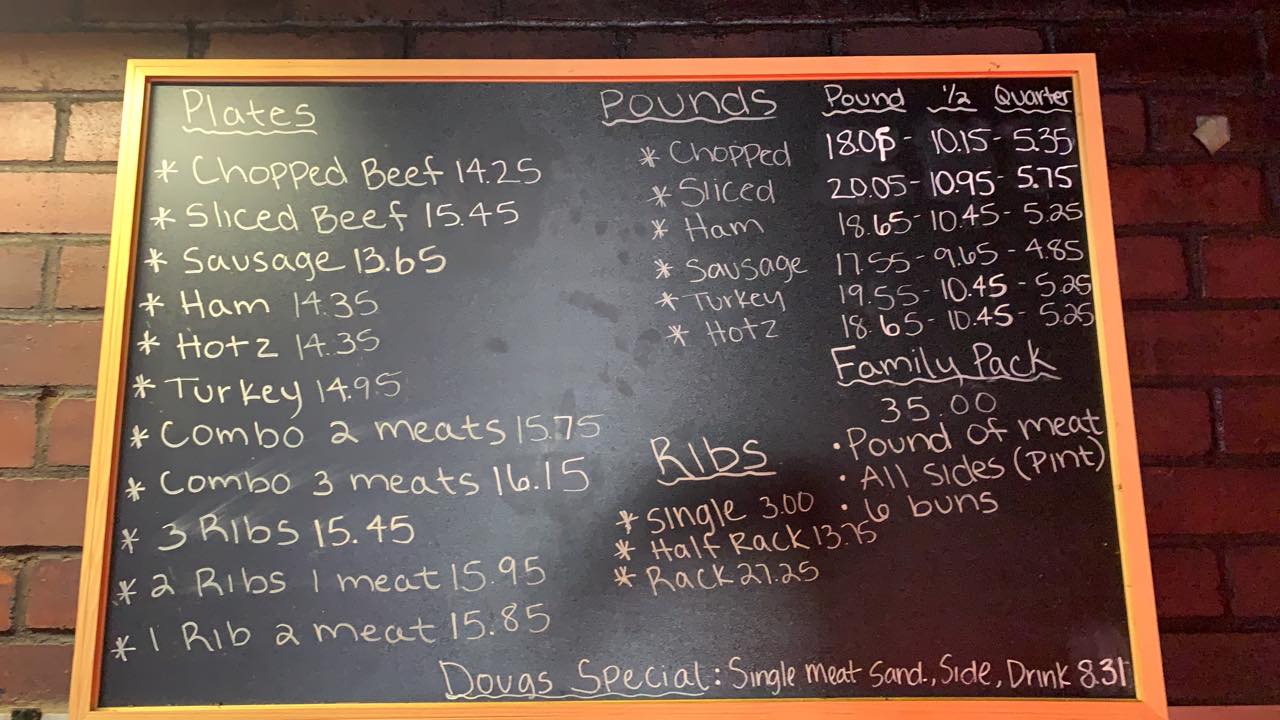 Plates
* Chopped Beef 14.25
* Sliced Beef 15.45
* Sausage 13.65
* Ham 14.35
* Hotz 14.35
* Turkey 14.95
* Combo 2 meats 15.75
* Combo 3 meats 16.15
* 3 Ribs 15.45
* 2 Ribs 1 meat 15.95
* 1 Rib 2 meat 15.85
Pounds Pound 1/2 Quarter
* Chopped 18.05 - 10.15 - 5.35
* Sliced 20.05 - 10.95 - 5.75
* Ham 18.65 - 10.45 - 5.25
* Sausage 17.55 - 9.65 - 4.85
* Turkey 19.55 - 10.45 - 5.25
* Hotz 18.65 - 10.45 - 5.25
Family Pack
35.00
• Pound of meat
• All sides (Pint)
• 6 buns
Ribs
* Single 3.00
* Half Rack 13.75
* Rack 27.25
Dougs Special: Single meat Sand., Side, Drink 8.31